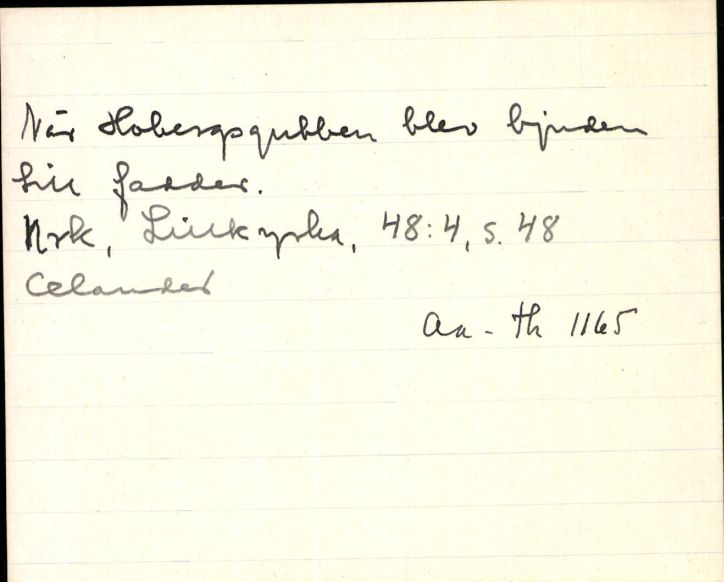 När Hobergsgubben blev bjuden
till fadder.
Nrk, Lillkyrka, 48:4, s. 48
Celander
Aa - Th 1165